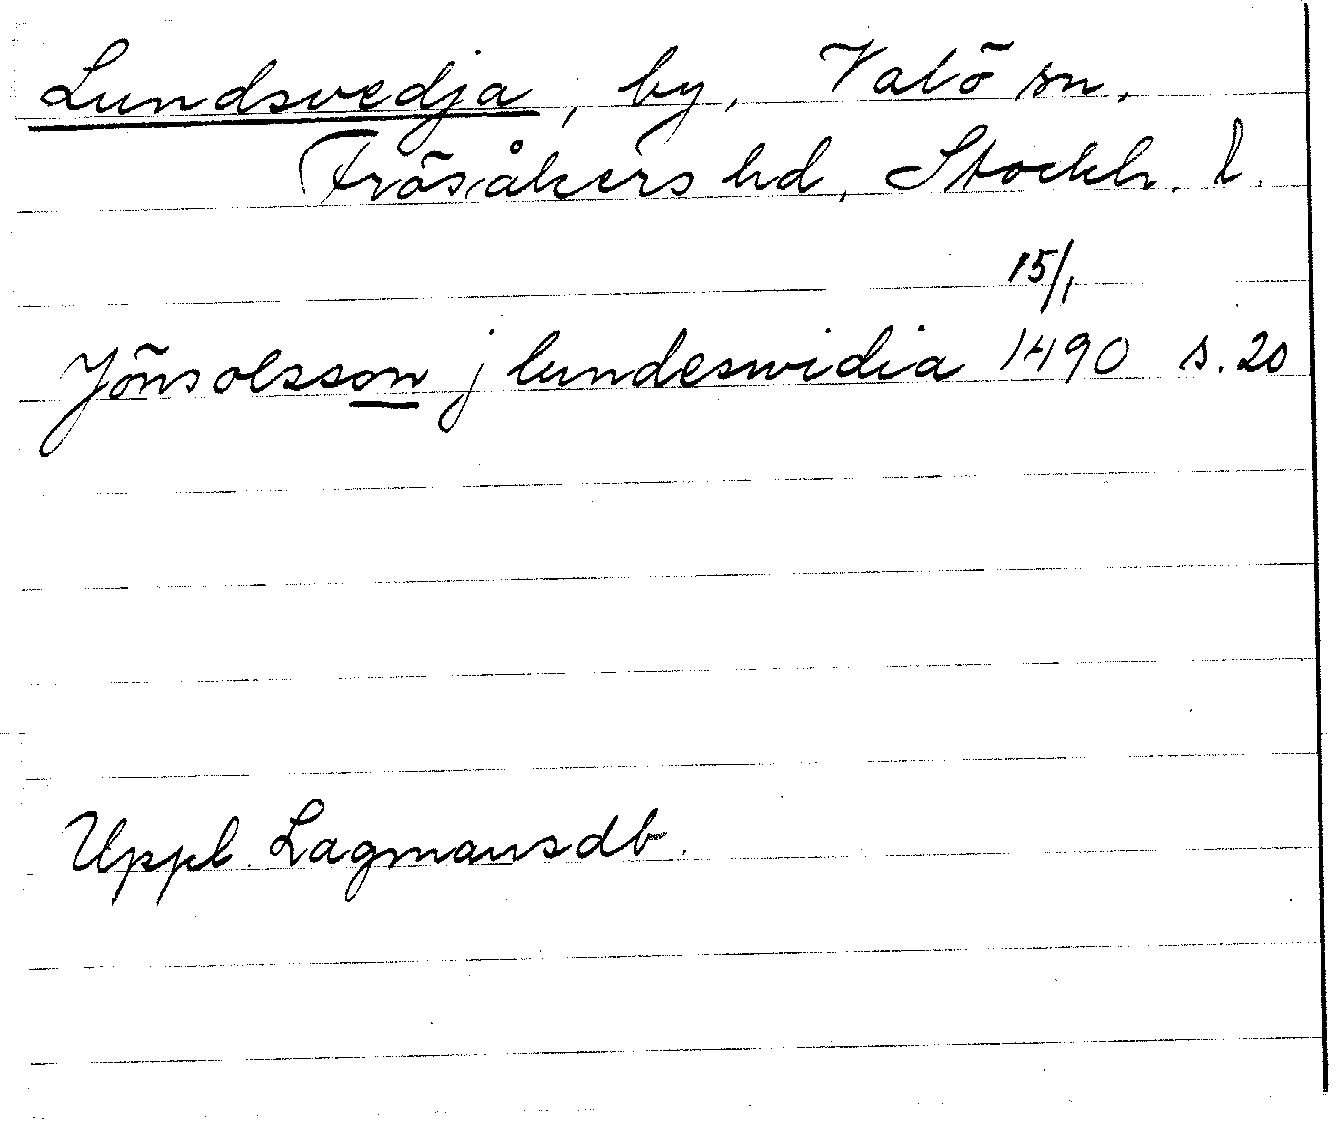 Lundsvedja, by, Valö sn.
Frösåkers hd, Stockh. l.
15/1
Jönsolsson j lundeswidia 1490 s. 20
Uppl. Lagmansdb.